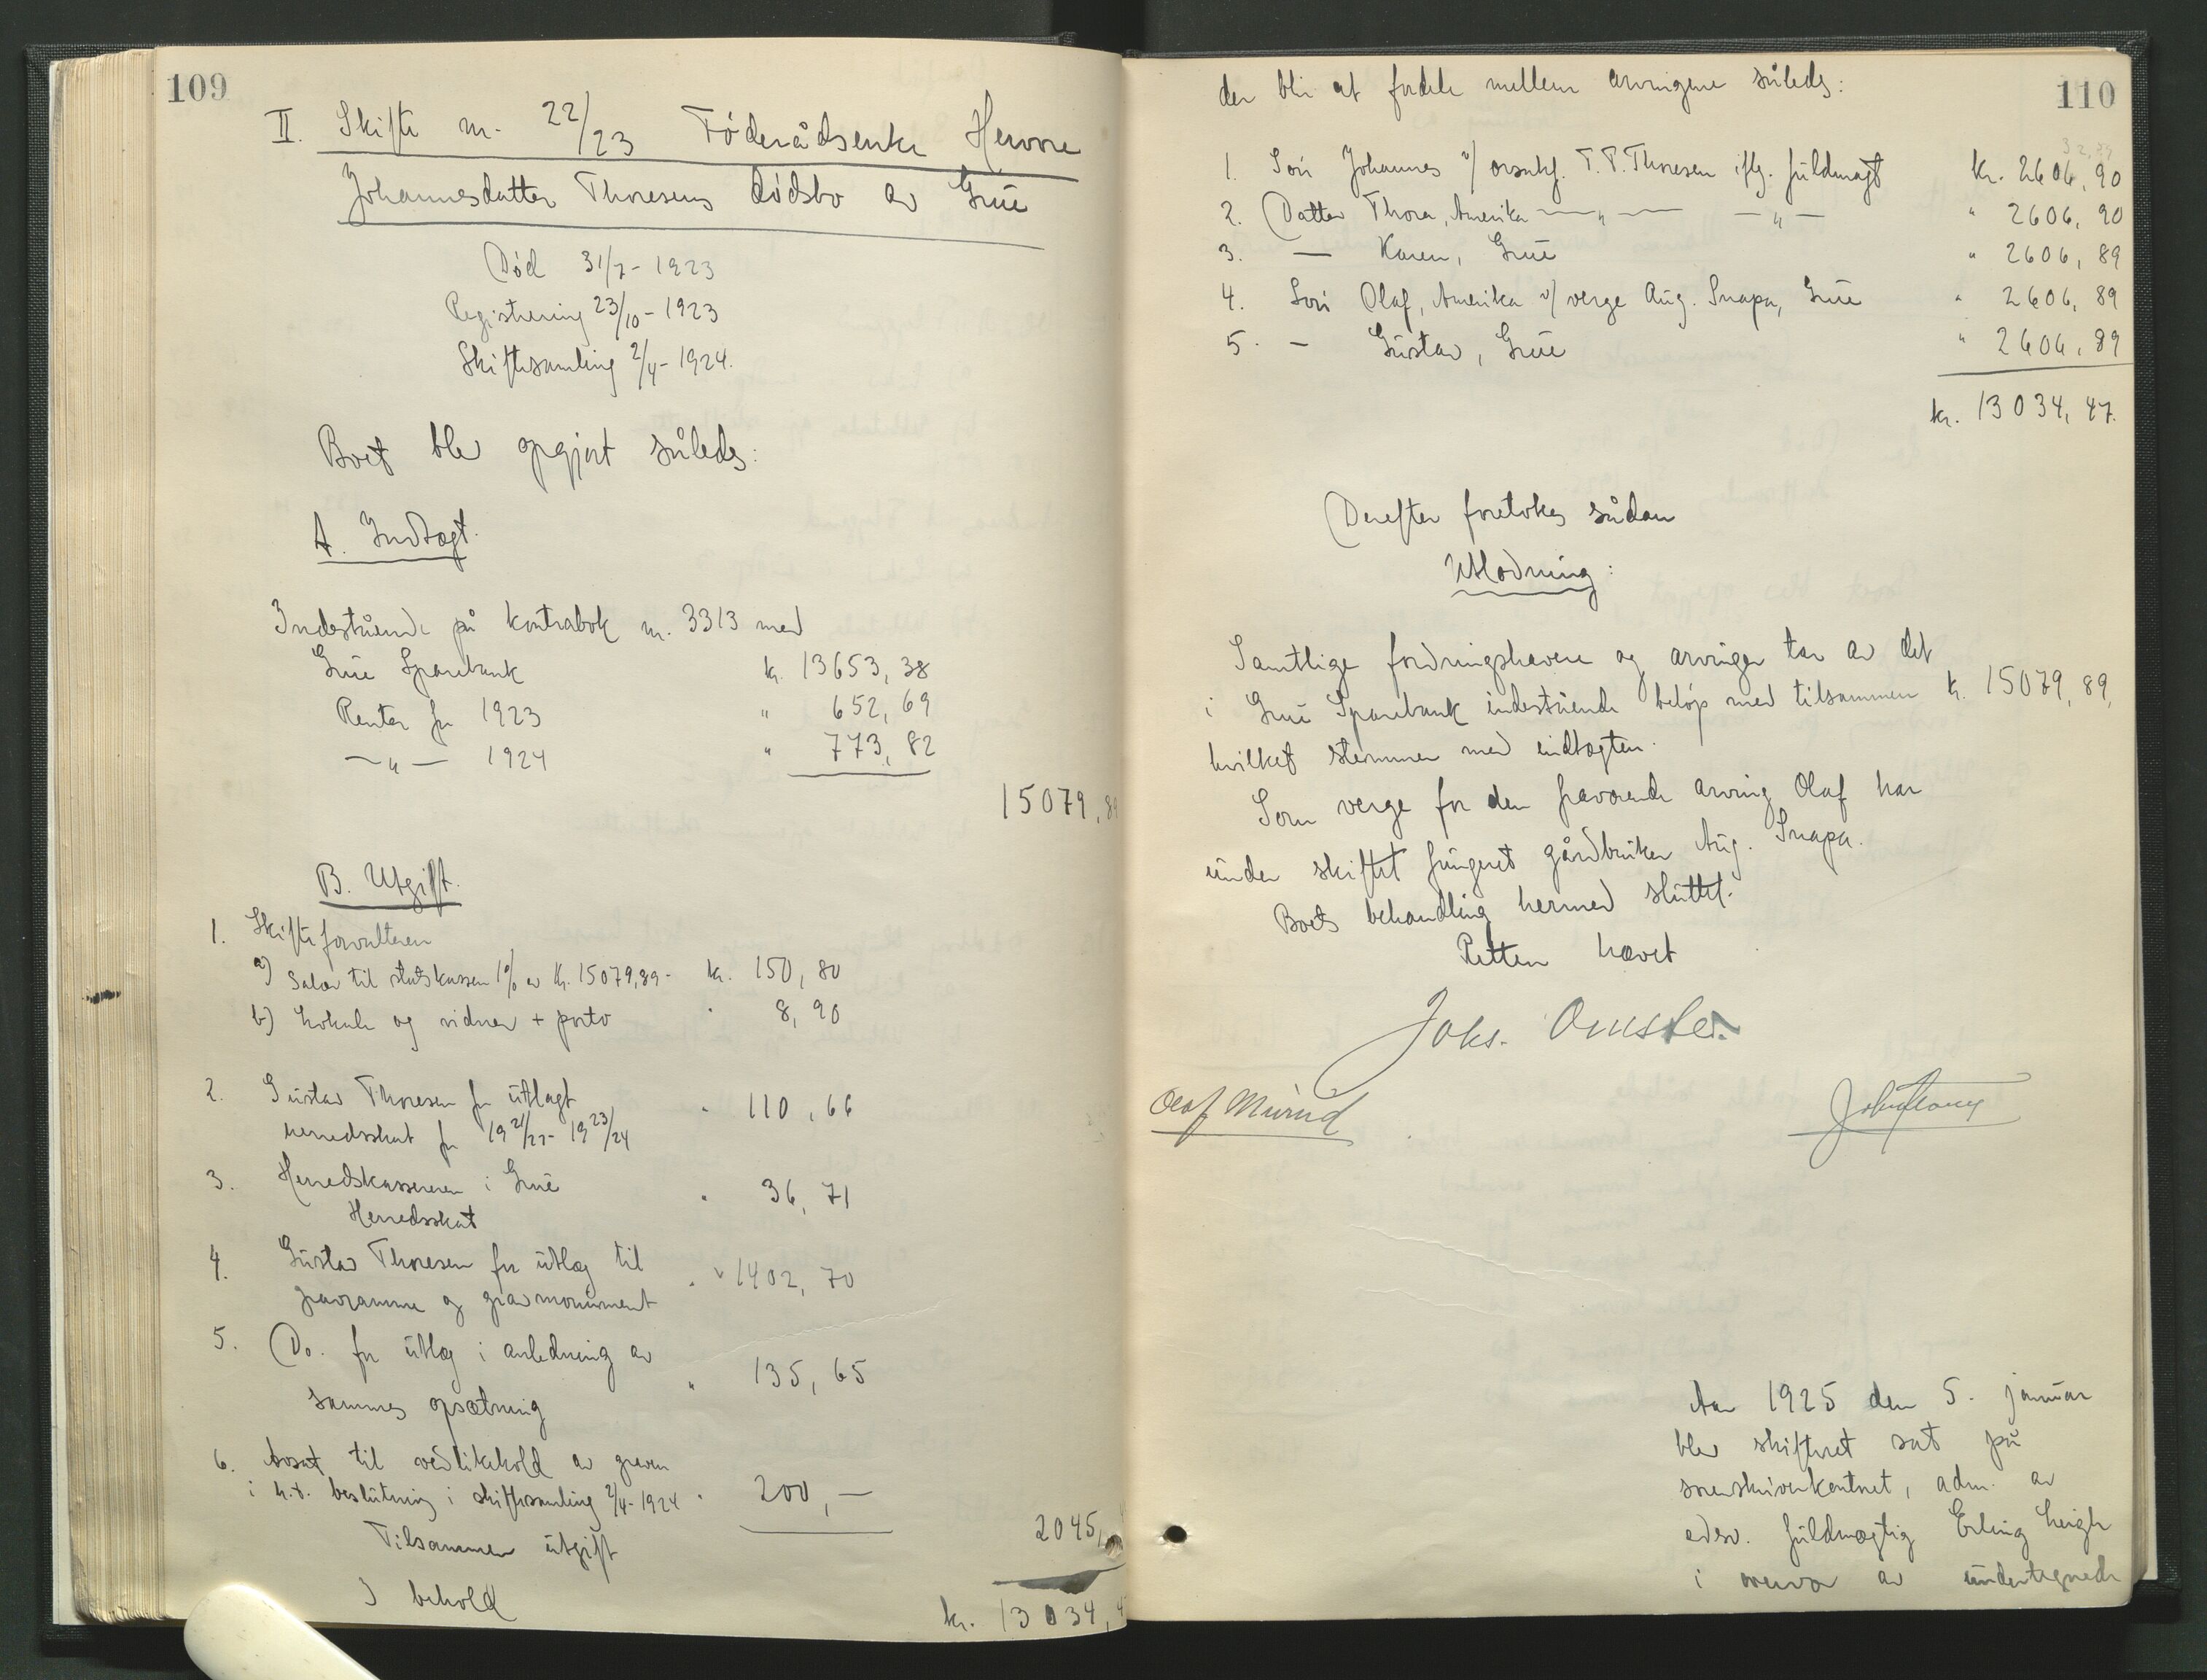 109
II. Skifte nr. 22/23 Föderådsenke Hervor
Johannesdatter Thoresens dödsbo av Grue
Död 31/7 - 1923
Registrering 23/10 - 1923
Skiftesamling 2/4 - 1924.
Boet blev opgjort således:
A. Indtægt.
Indestående på kontrabok nr. 3313 med
Grue Sparebank kr. 13653,38
Renter for 1923 " 652,69
—"— 1924 " 773,82
15079,89
B. Utgift.
1. Skifteforvalteren
a) Salær til statskassen 1% av kr. 15079,89 - kr. 150,80
b) Lokale og vidner + porto " 8,90
2. Gustav Thoresen for utlagt " 110,66
herredsskat for 19 21/22 - 19 23/24
3. Herredskassereren i Grue " 36,71
Herredsskat
4. Gustav Thoresen for utlæg til " 1402,70
gravramme og gravmonument
5. Do. for utlæg i anledning av " 135,65
sammes opsætning
6. Avsat til vedlikehold av graven
i h.t. beslutning i skiftesamling 2/4 - 1924 " 200,—
Tilsammen utgift 2045,
I behold kr. 13034,4
110
der blir at fordele mellem arvingene således:
1. Sön Johannes v/ T.P. Thoresen iflg. fuldmagt kr. 2606,90
2. Datter Thora, Amerika —"— —"— " 2606,90
3. — Karen, Grue " 2606,89
4. Sön Olaf, Amerika v/ verge Aug. Snapa, Grue " 2606,89
5. — Gustav, Grue " 2606,89
kr. 13034,47.
Derefter foretokes sådan
Utlodning:
Samtlige fordringshavere og arvinger tar av det
i Grue Sparebank indestående beløp med tilsammen kr. 15079,89,
hvilket stemmer med indtægten.
Som verge for den fraværende arving Olaf har
under skiftet fungeret gårdbruker Aug. Snapa.
Boets behandling hermed sluttet.
Retten hævet
Johs.
Olaf Murud
Aar 1925 den 5. januar
blev skifteret sat på
sorenskriverkontoret, adm. av
edsv. fuldmægtig Erling Leigh
i overvær av undertegnede